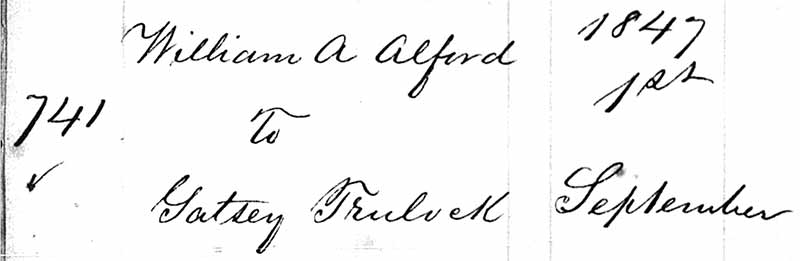 William A Alford 1847
1st
741 To
Gatsey Trulock September